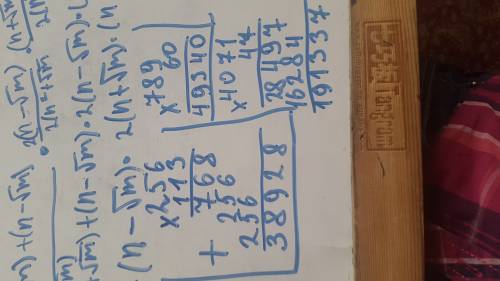 m) + (n-√m) · 2(n-√m) · (n+√m
2(n²+√m · 2(
m)
+√m) + (n-√m) · 2(n-√m) · 2(
(n - √m) · 2(n+√m) · (n
×256
113
768
+ 256
256
38928
×789
60
49340
×4071
47
28497
16284
191337
Tangram